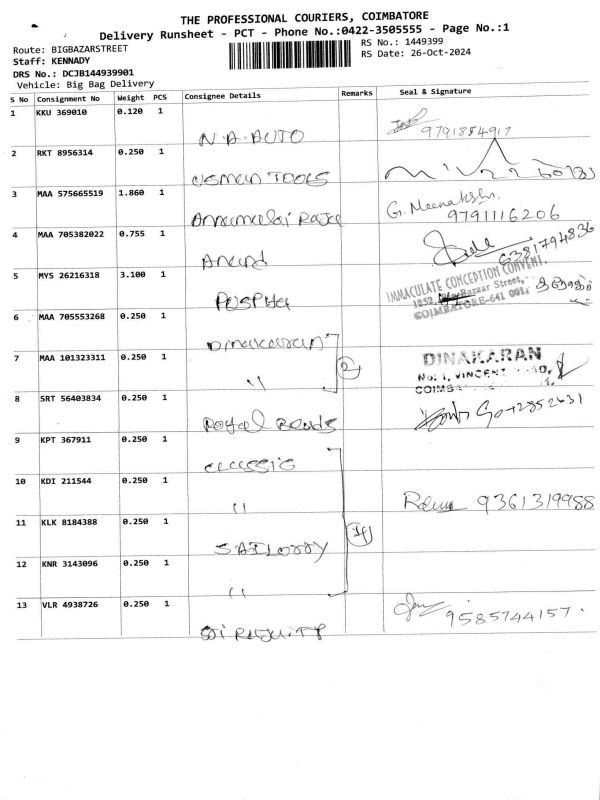 THE PROFESSIONAL COURIERS, COIMBATORE
Delivery Runsheet - PCT - Phone No.:0422-3505555 - Page No.:1
Route: BIGBAZARSTREET
RS No.: 1449399
Staff: KENNADY
RS Date: 26-Oct-2024
DRS No.: DCJB144939901
Vehicle: Big Bag Delivery
S No Consignment No Weight PCS Consignee Details Remarks Seal & Signature
1 KKU 369010 0.120 1
N.A. AUTO 9791854917
2 RKT 8956314 0.250 1
USMAN TOOLS
3 MAA 575665519 1.860 1
Annamalai Raja G. Meenakshi. 9791116206
4 MAA 705382022 0.755 1
Anand 6381794836
5 MYS 26216318 3.100 1
PUSPHA IMMACULATE CONCEPTION CONVENT,
Bazaar Street,
COIMBATORE-641 001.
6 MAA 705553268 0.250 1
Dinakaran
7 MAA 101323311 0.250 1
" 2 DINAKARAN
No: 1, VINCENT
8 SRT 56403834 0.250 1
Royal Brads
9 KPT 367911 0.250 1
CLASSIC
10 KDI 211544 0.250 1
" 9361319988
11 KLK 8184388 0.250 1
SAILORRY
12 KNR 3143096 0.250 1
"
13 VLR 4938726 0.250 1
9585744157.